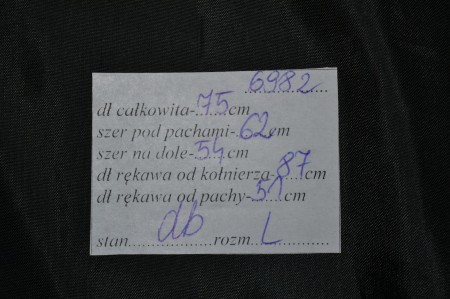 6982
dł całkowita-75cm
szer pod pachami-62cm
szer na dole-54cm
dł rękawa od kołnierza-87cm
dł rękawa od pachy-51cm
stan db rozm L